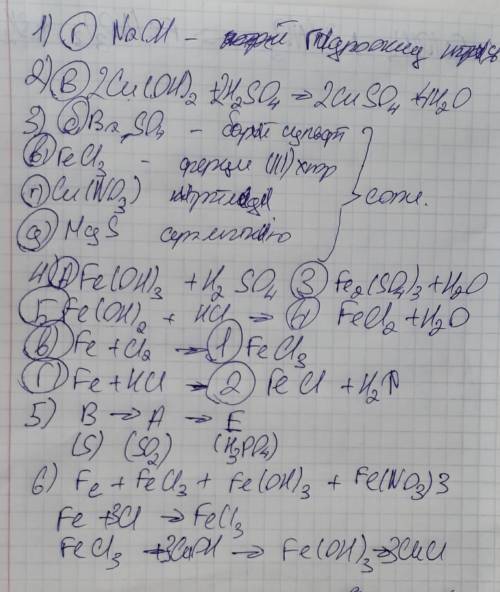 1) Г NaOH – гидроксид
2) В 2Cu(OH)2 + 2H2SO4 → 2CuSO4 + H2O
3) Ba2SO4 – барий сульфат
в) FeCl3 – (III) хлор
Cu(NO3)
MgS
соли.
4) А Fe(OH)3 + H2SO4 3 Fe2(SO4)3 + H2O
Б Fe(OH)2 + HCl → 4 FeCl2 + H2O
В Fe + Cl2 → 1 FeCl3
Г Fe + HCl → 2 FeCl + H2↑
5) В → А → Е
(S) (SO2) (H3PO4)
6) Fe + FeCl3 + Fe(OH)3 + Fe(NO3)3
Fe + 3Cl → FeCl3
FeCl3 + 3CuOH → Fe(OH)3 + 3CuCl